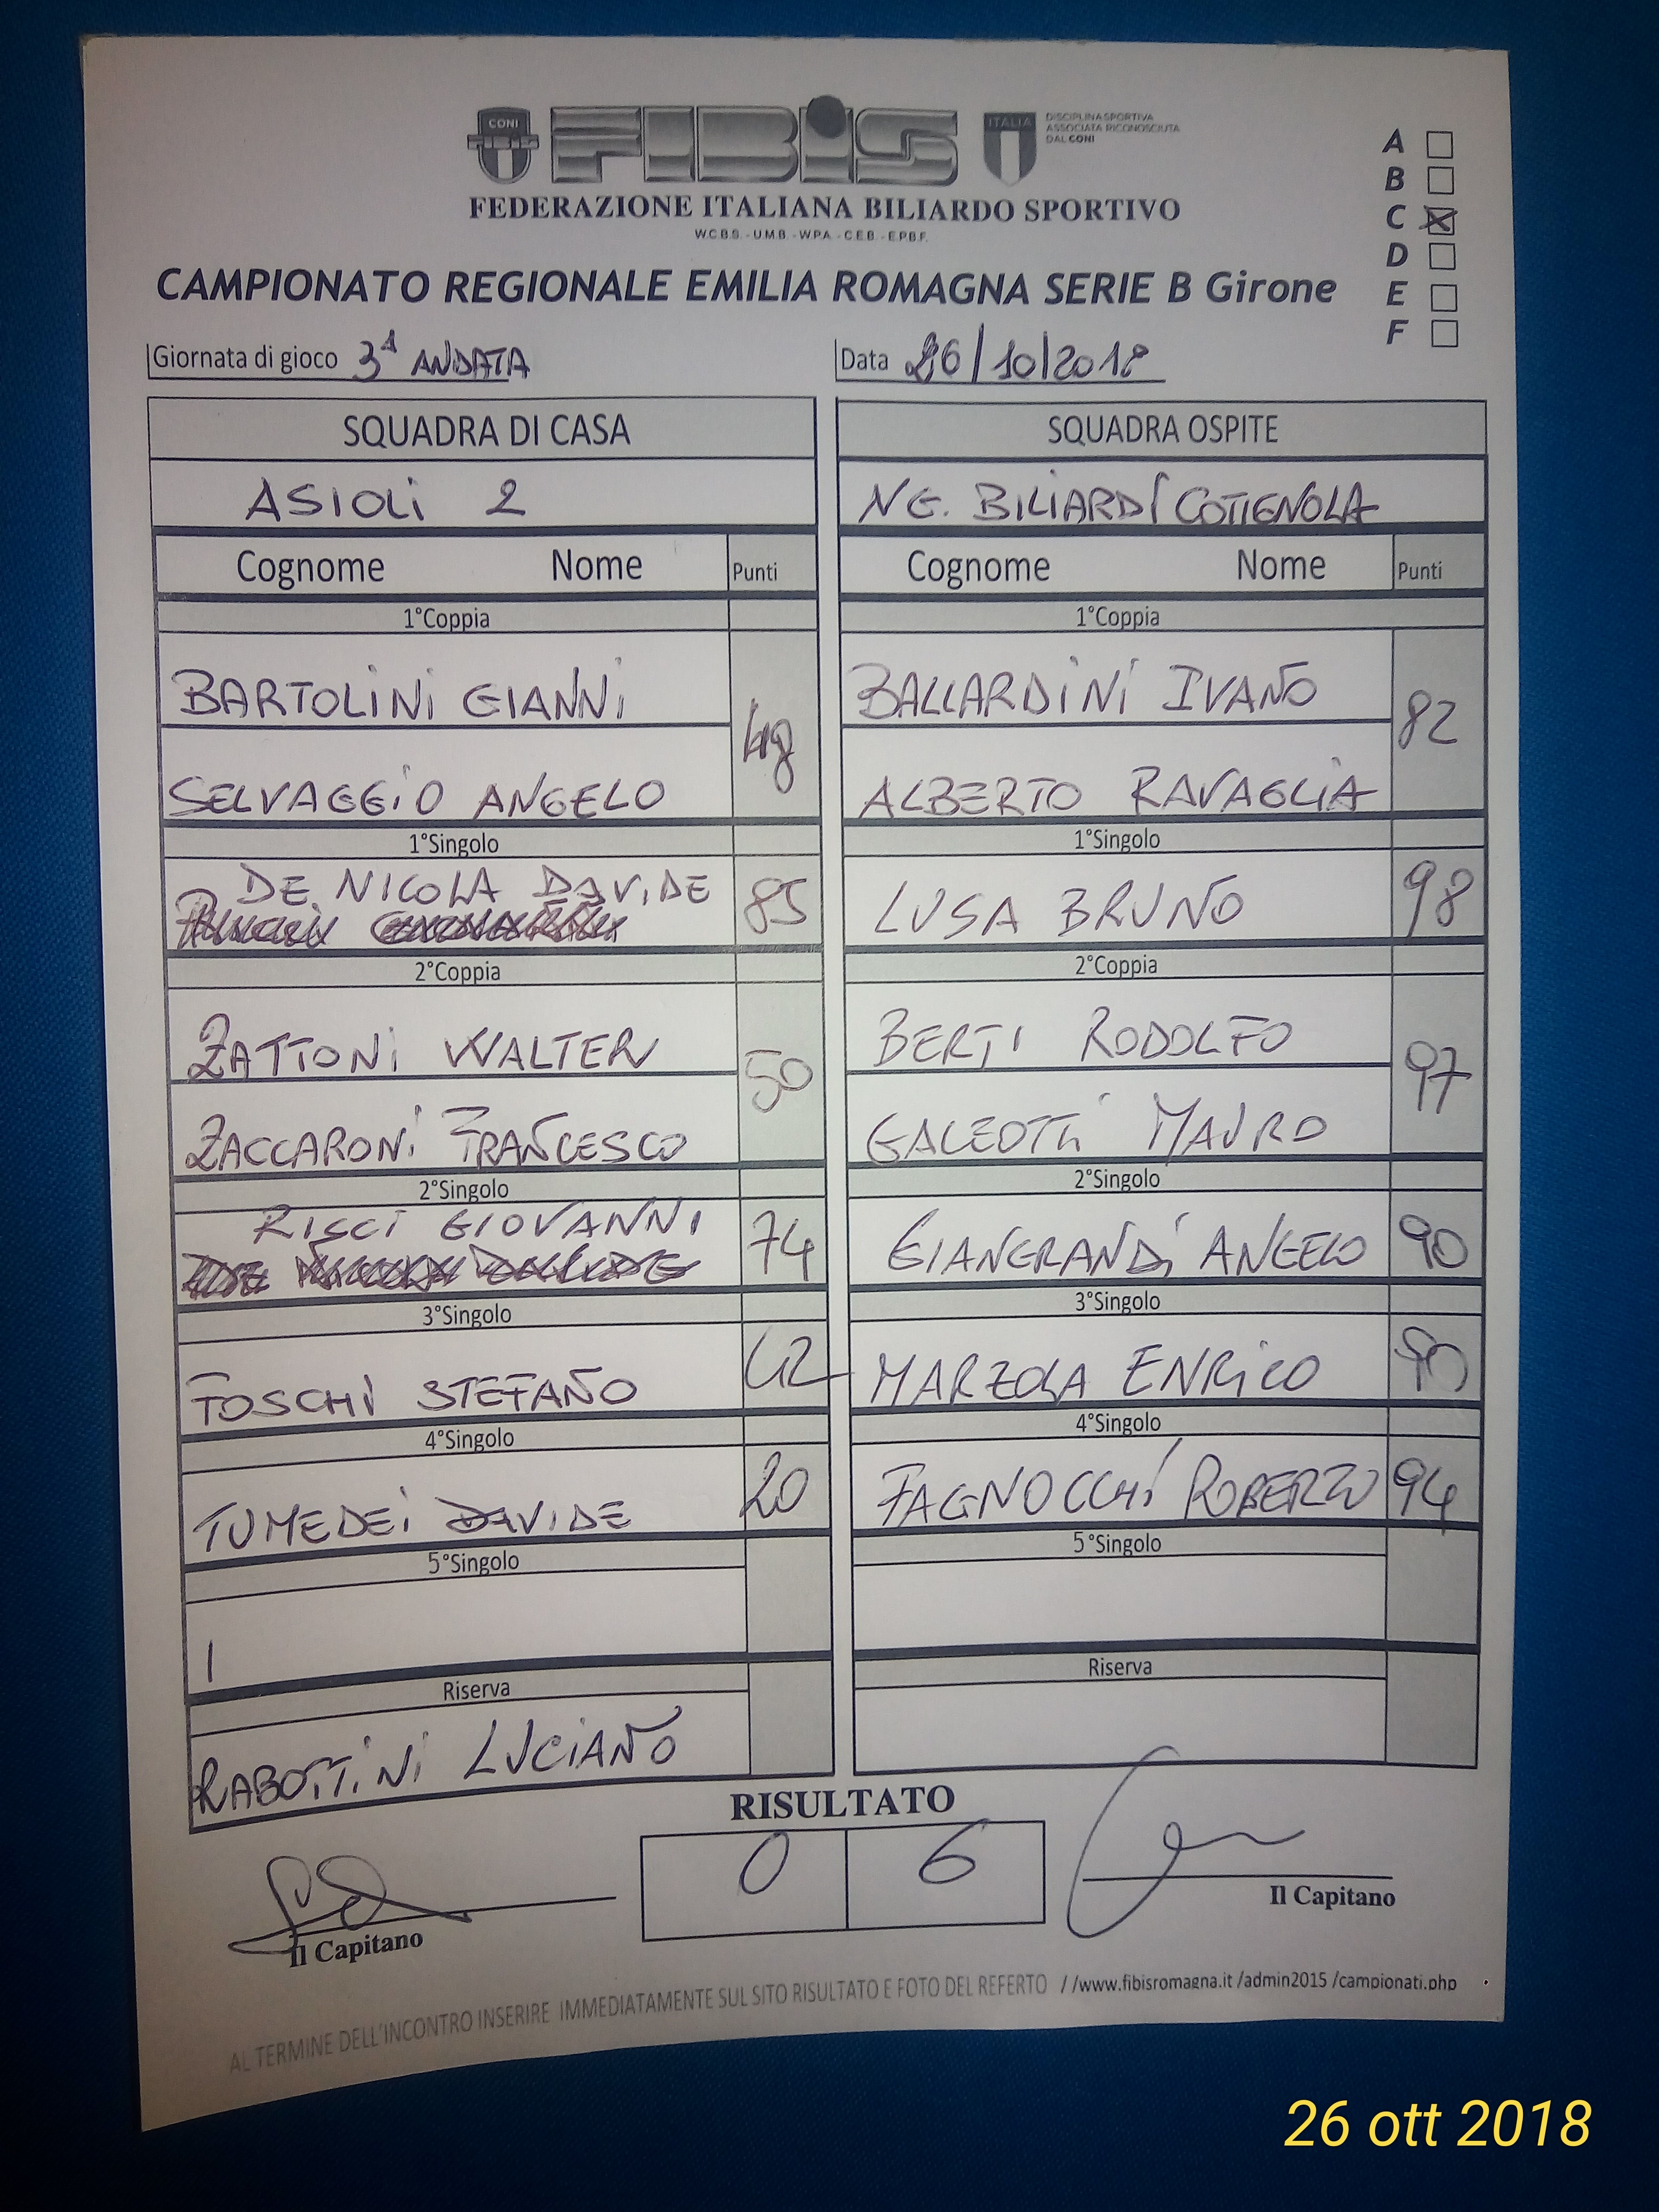 CONI
FIBIS
FIBiS
ITALIA
DISCIPLINA SPORTIVA
ASSOCIATA RICONOSCIUTA
DAL CONI
FEDERAZIONE ITALIANA BILIARDO SPORTIVO
W.C.B.S. - U.M.B. - W.P.A. - C.E.B. - E.P.B.F.
A
B
C X
D
E
F
CAMPIONATO REGIONALE EMILIA ROMAGNA SERIE B Girone
Giornata di gioco 3ª ANDATA Data 26/10/2018
SQUADRA DI CASA SQUADRA OSPITE
ASIOLI 2 NG. BILIARDI COTIGNOLA
Cognome Nome Punti Cognome Nome Punti
1°Coppia 1°Coppia
BARTOLINI GIANNI BALLARDINI IVANO 82
SELVAGGIO ANGELO ALBERTO RAVAGLIA
1°Singolo 1°Singolo
DE NICOLA DAVIDE 85 LUSA BRUNO 98
2°Coppia 2°Coppia
ZATTONI WALTER 50 BERTI RODOLFO 97
ZACCARONI FRANCESCO GALEOTTI MAURO
2°Singolo 2°Singolo
RICCI GIOVANNI 74 GIANGRANDI ANGELO 90
3°Singolo 3°Singolo
FOSCHI STEFANO MARZOLA ENRICO 90
4°Singolo 4°Singolo
TUMEDEI DAVIDE 20 FAGNOCCHI ROBERTO 94
5°Singolo 5°Singolo
Riserva Riserva
RABOTTINI LUCIANO
RISULTATO
0 6
Il Capitano Il Capitano
AL TERMINE DELL'INCONTRO INSERIRE IMMEDIATAMENTE SUL SITO RISULTATO E FOTO DEL REFERTO //www.fibisromagna.it /admin2015 /campionati.php
26 ott 2018